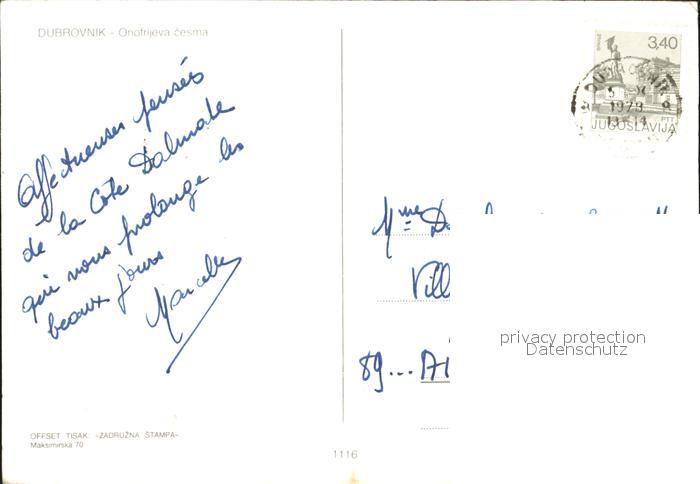 DUBROVNIK - Onofrijeva česma
3,40
PTT
JUGOSLAVIJA
1979
Affectueuses pensées
de la Côte Dalmate
qui nous prolonge les
beaux jours
Mme
89...
privacy protection
Datenschutz
OFFSET TISAK: »ZADRUŽNA ŠTAMPA«
Maksimirska 70
1116